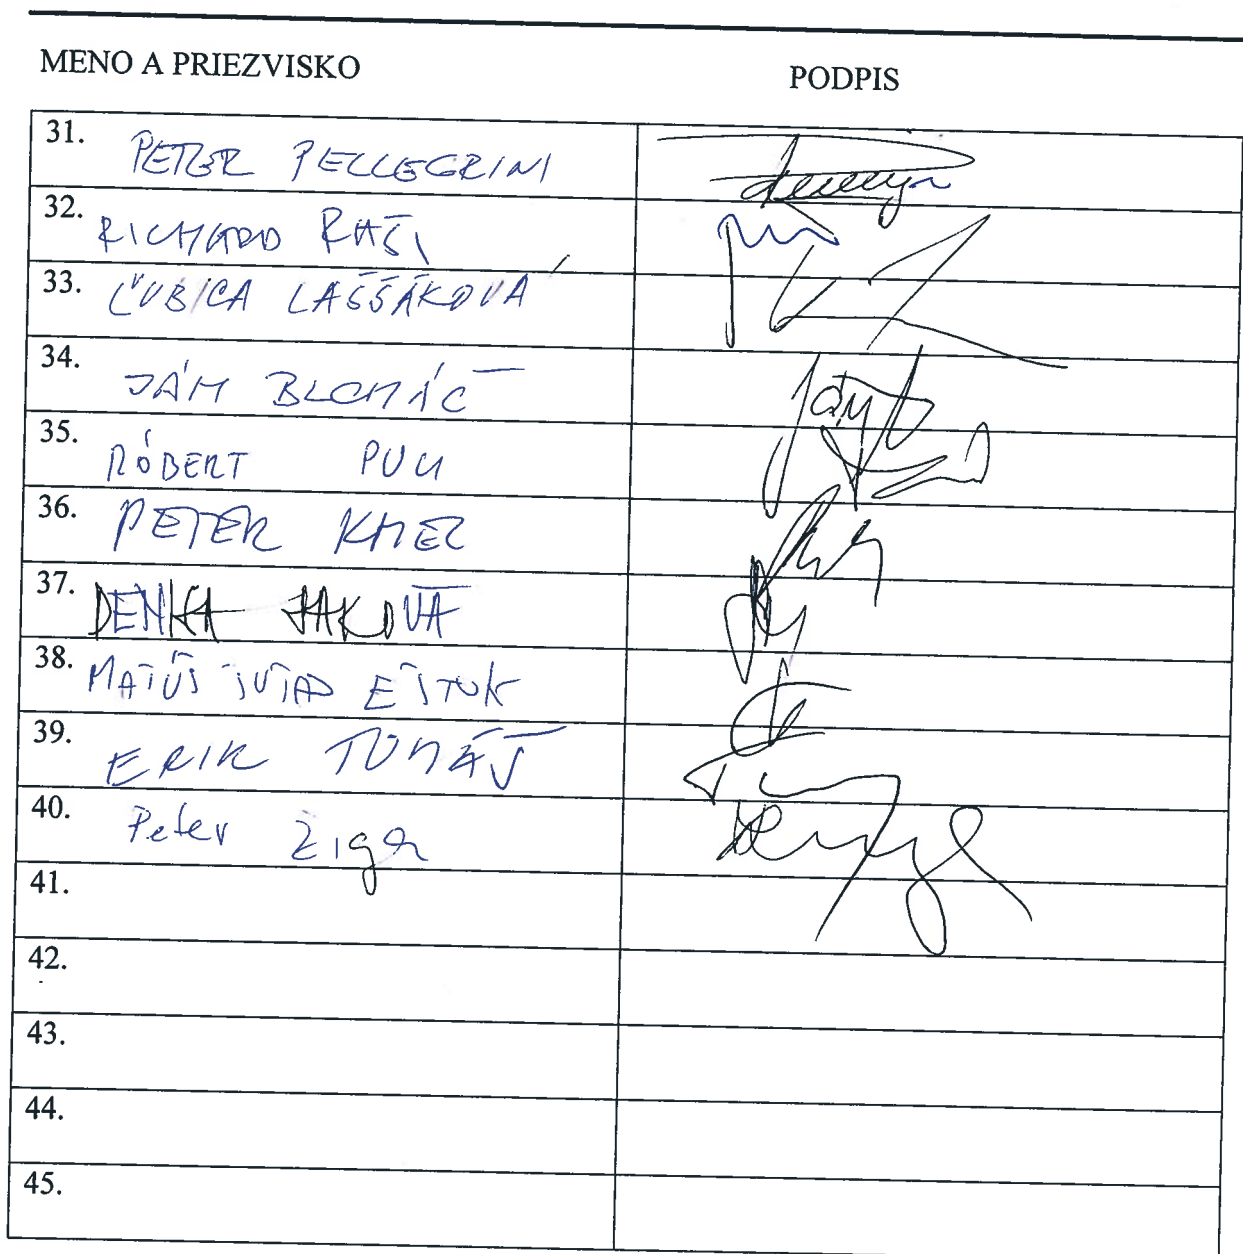 MENO A PRIEZVISKO PODPIS
31. PETER PELLEGRINI
32. RICHARD RAŠI
33. ĽUBICA LAŠŠÁKOVÁ
34. JÁN BLCHÁČ
35. RÓBERT PUCI
36. PETER KMEC
37. DENISA SAKOVÁ
38. MATÚŠ ŠUTAJ EŠTOK
39. ERIK TOMÁŠ
40. Peter Žiga
41.
42.
43.
44.
45.